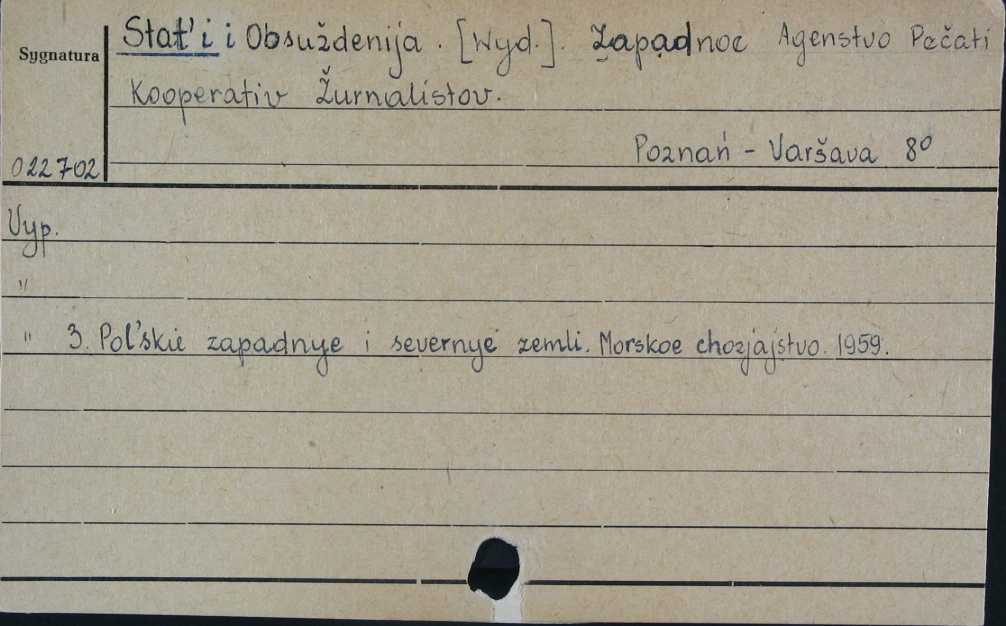 Stat'i i Obsuždenija. [Wyd.]. Zapadnoe Agenstvo Pečati
Sygnatura
Kooperativ Žurnalistov.
Poznań - Varšava 8º
022702
Vyp.
"
" 3. Pol'skie zapadnye i severnye zemli. Morskoe chozjajstvo. 1959.